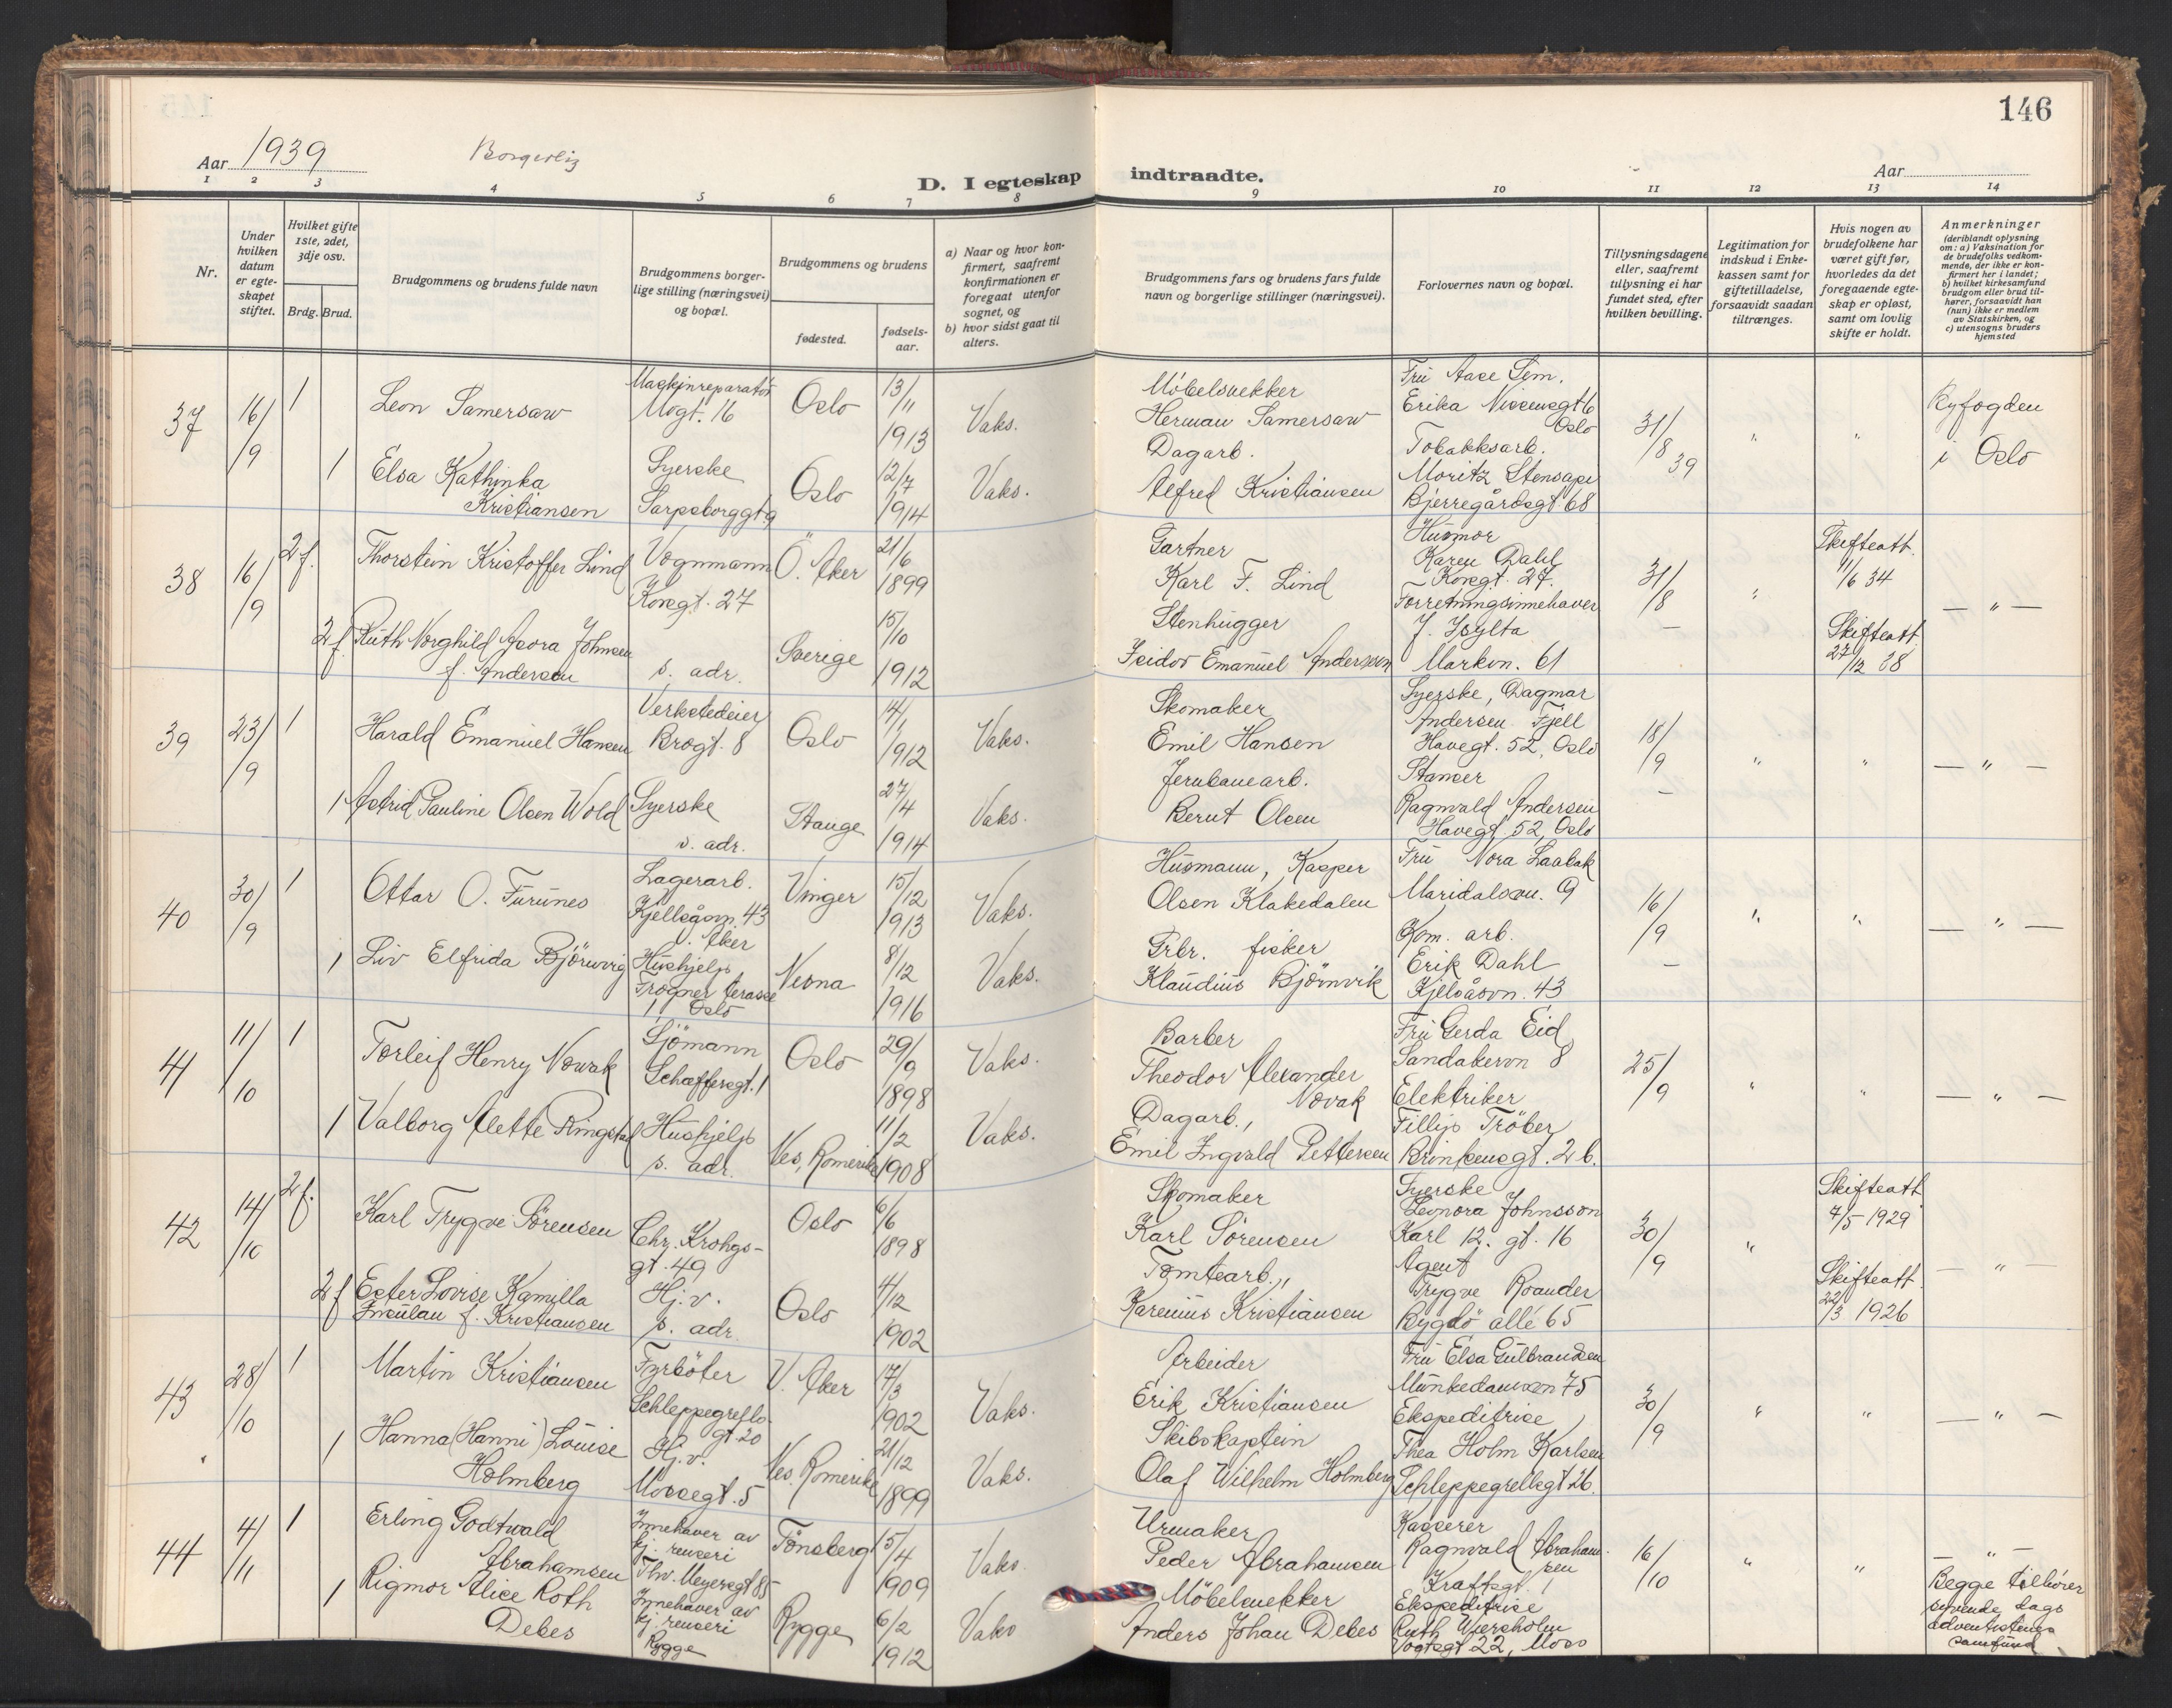 146
Aar 1939
Borgerlig
D. I egteskap indtraadte.
Aar
1 2 3 4 5 6 7 8 9 10 11 12 13 14
Nr.
Under hvilken datum er egte-skapet stiftet.
Hvilket gifte 1ste, 2det, 3dje osv.
Brdg. Brud.
Brudgommens og brudens fulde navn
Brudgommens borger-lige stilling (næringsvei) og bopæl.
Brudgommens og brudens
fødested.
fødsels-aar.
a) Naar og hvor kon-firmert, saafremt konfirmationen er foregaat utenfor sognet, og
b) hvor sidst gaat til alters.
Brudgommens fars og brudens fars fulde navn og borgerlige stillinger (næringsvei).
Forlovernes navn og bopæl.
Tillysningsdagene eller, saafremt tillysning ei har fundet sted, efter hvilken bevilling.
Legitimation for indskud i Enke-kassen samt for giftetilladelse, forsaavidt saadan tiltrænges.
Hvis nogen av brudefolkene har været gift før, hvorledes da det foregaaende egte-skap er opløst, samt om lovlig skifte er holdt.
Anmerkninger
(deriblandt oplysning om: a) Vaksination for de brudefolks vedkom-mende, der ikke er kon-firmert her i landet; b) hvilket kirkesamfund brudgom eller brud til-hører, forsaavidt han (hun) ikke er medlem av Statskirken, og c) utensogns bruders hjemsted
37 16/9 1 Leon Samersaw Maskinreparatör Mogt. 16 Oslo 13/11 1913 Vaks. Möbelsnekker Herman Samersaw Fru Aase Sem. Erika Nissensgt 6 Oslo 31/8 39 " " Byfogden i Oslo
1 Elsa Kathinka Kristiansen Syerske Sarpsborggt 9 Oslo 12/7 1914 Vaks. Dagarb. Alfred Kristiansen Tobakksarb. Moritz Stensape Bjerregårdsgt 68
38 16/9 2 f. Thorstein Kristoffer Lind Vognmann Korsgt. 27 Ö. Aker 21/6 1899 Gartner Karl F. Lind Husmor Karen Dahl Korsgt. 27. 31/8 " Skifteatt. 11/6 34 — " —
2 f. Ruth Norghild Asora Johnsen f. Andersen s. adr. Sverige 15/10 1912 Stenhugger Isidor Emanuel Andersson Forretningsinnehaver J. Hylta Markvn. 61 — Skifteatt 27/12 38
39 23/9 1 Harald Emanuel Hansen Verkstedeier Brogt. 8 Oslo 14/1 1912 Vaks. Skomaker Emil Hansen Syerske, Dagmar Andersen Fjell Havegt. 52, Oslo 18/9 " " — " —
1 Astrid Pauline Olsen Wold Syerske s. adr. Stange 27/4 1914 Vaks. Jernbanearb. Bernt Olsen Stanser Ragnvald Andersen Havegt. 52, Oslo —
40 30/9 1 Ottar O. Furunes Lagerarb. Kjellsåsvn. 43 V. Aker Vinger 15/12 1913 Vaks. Husmann, Kasper Olsen Klakedalen Fru Nora Laabak Maridalsvn. 9 16/9 " " — " —
1 Liv Elfrida Björnvig Hushjelp Frogner terasse 1 Oslo Nesna 8/12 1916 Vaks. Grbr. fisker Klaudius Björnvik Kom. arb. Erik Dahl Kjelsåsvn. 43 —
41 11/10 1 Torleif Henry Novak Sjömann Schæffersgt. 1 Oslo 29/9 1898 Vaks. Barber Theodor Alexander Novak Fru Gerda Eid Sandakervn 8 25/9 " " — " —
1 Valborg Alette Ringstad Hushjelp s. adr. Nes, Romerike 11/2 1908 Vaks. Dagarb., Emil Ingvald Pettersen Elektriker Fillip Tröber Brinkensgt. 2 b.
42 14/10 2 f. Karl Trygve Sörensen Chr. Krohgs-gt. 49 Oslo 6/6 1898 Skomaker Karl Sörensen Syerske Leonora Johnsson Karl 12. gt. 16 30/9 " Skifteatt 4/5 1929 — " —
2 f Ester Lovise Kamilla Insulan f. Kristiansen Hj.v. s. adr. Oslo 4/12 1902 Tomtearb., Karenius Kristiansen Agent Trygve Roander Bygdö allé 65 Skifteatt. 22/3 1926
43 28/10 1 Martin Kristiansen Fyrböter Schleppegrells gt. 20 V. Aker 17/3 1902 Vaks. Arbeider Erik Kristiansen Fru Elsa Gulbrandsen Munkedamsvn 75 30/9 " " — " —
1 Hanna (Hanni) Louise Holmberg Hj.v. Mossegt. 5 Nes. Romerike 21/12 1899 Vaks. Skibskaptein Olaf Wilhelm Holmberg Ekspeditrise Thea Holm Karlsen Schleppegrellsgt 26.
44 4/11 1 Erling Godtwald Abrahamsen Innehaver av kj. renseri Thv. Meyersgt 85 Tönsberg 15/4 1909 Vaks. Urmaker Peder Abrahamsen Kasserer Ragnvald Abraham-sen Kraftsgt. 1 16/10 " " — " —
1 Rigmor Alice Roth Debes Innehaver av kj. renseri Rygge Rygge 6/2 1912 Vaks Möbelsnekker Anders Johan Debes Ekspeditrise Ruth Wiersholm Vogtsgt 22, Moss Begge tilhörer syvende dags adventistenes samfund